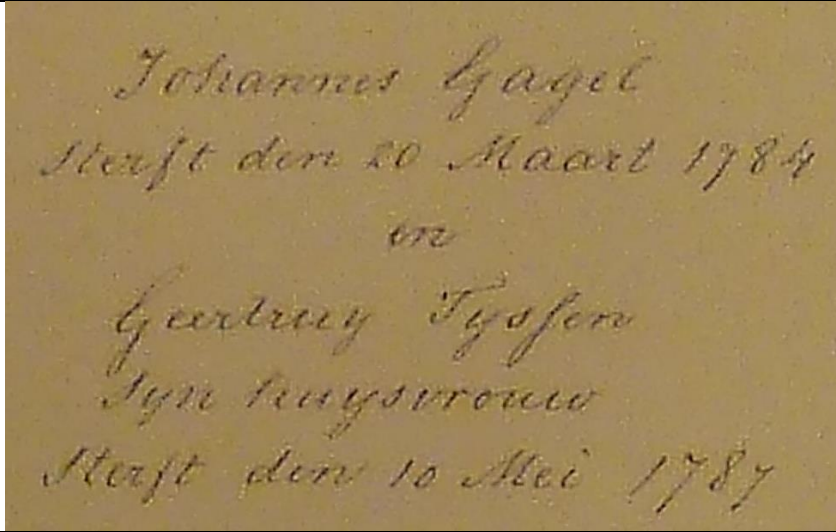 Johannes Gagel
Sterft den 20 Maart 1784
en
Geertruy Tyssen
Syn huysvrouw
Sterft den 10 Mei 1787